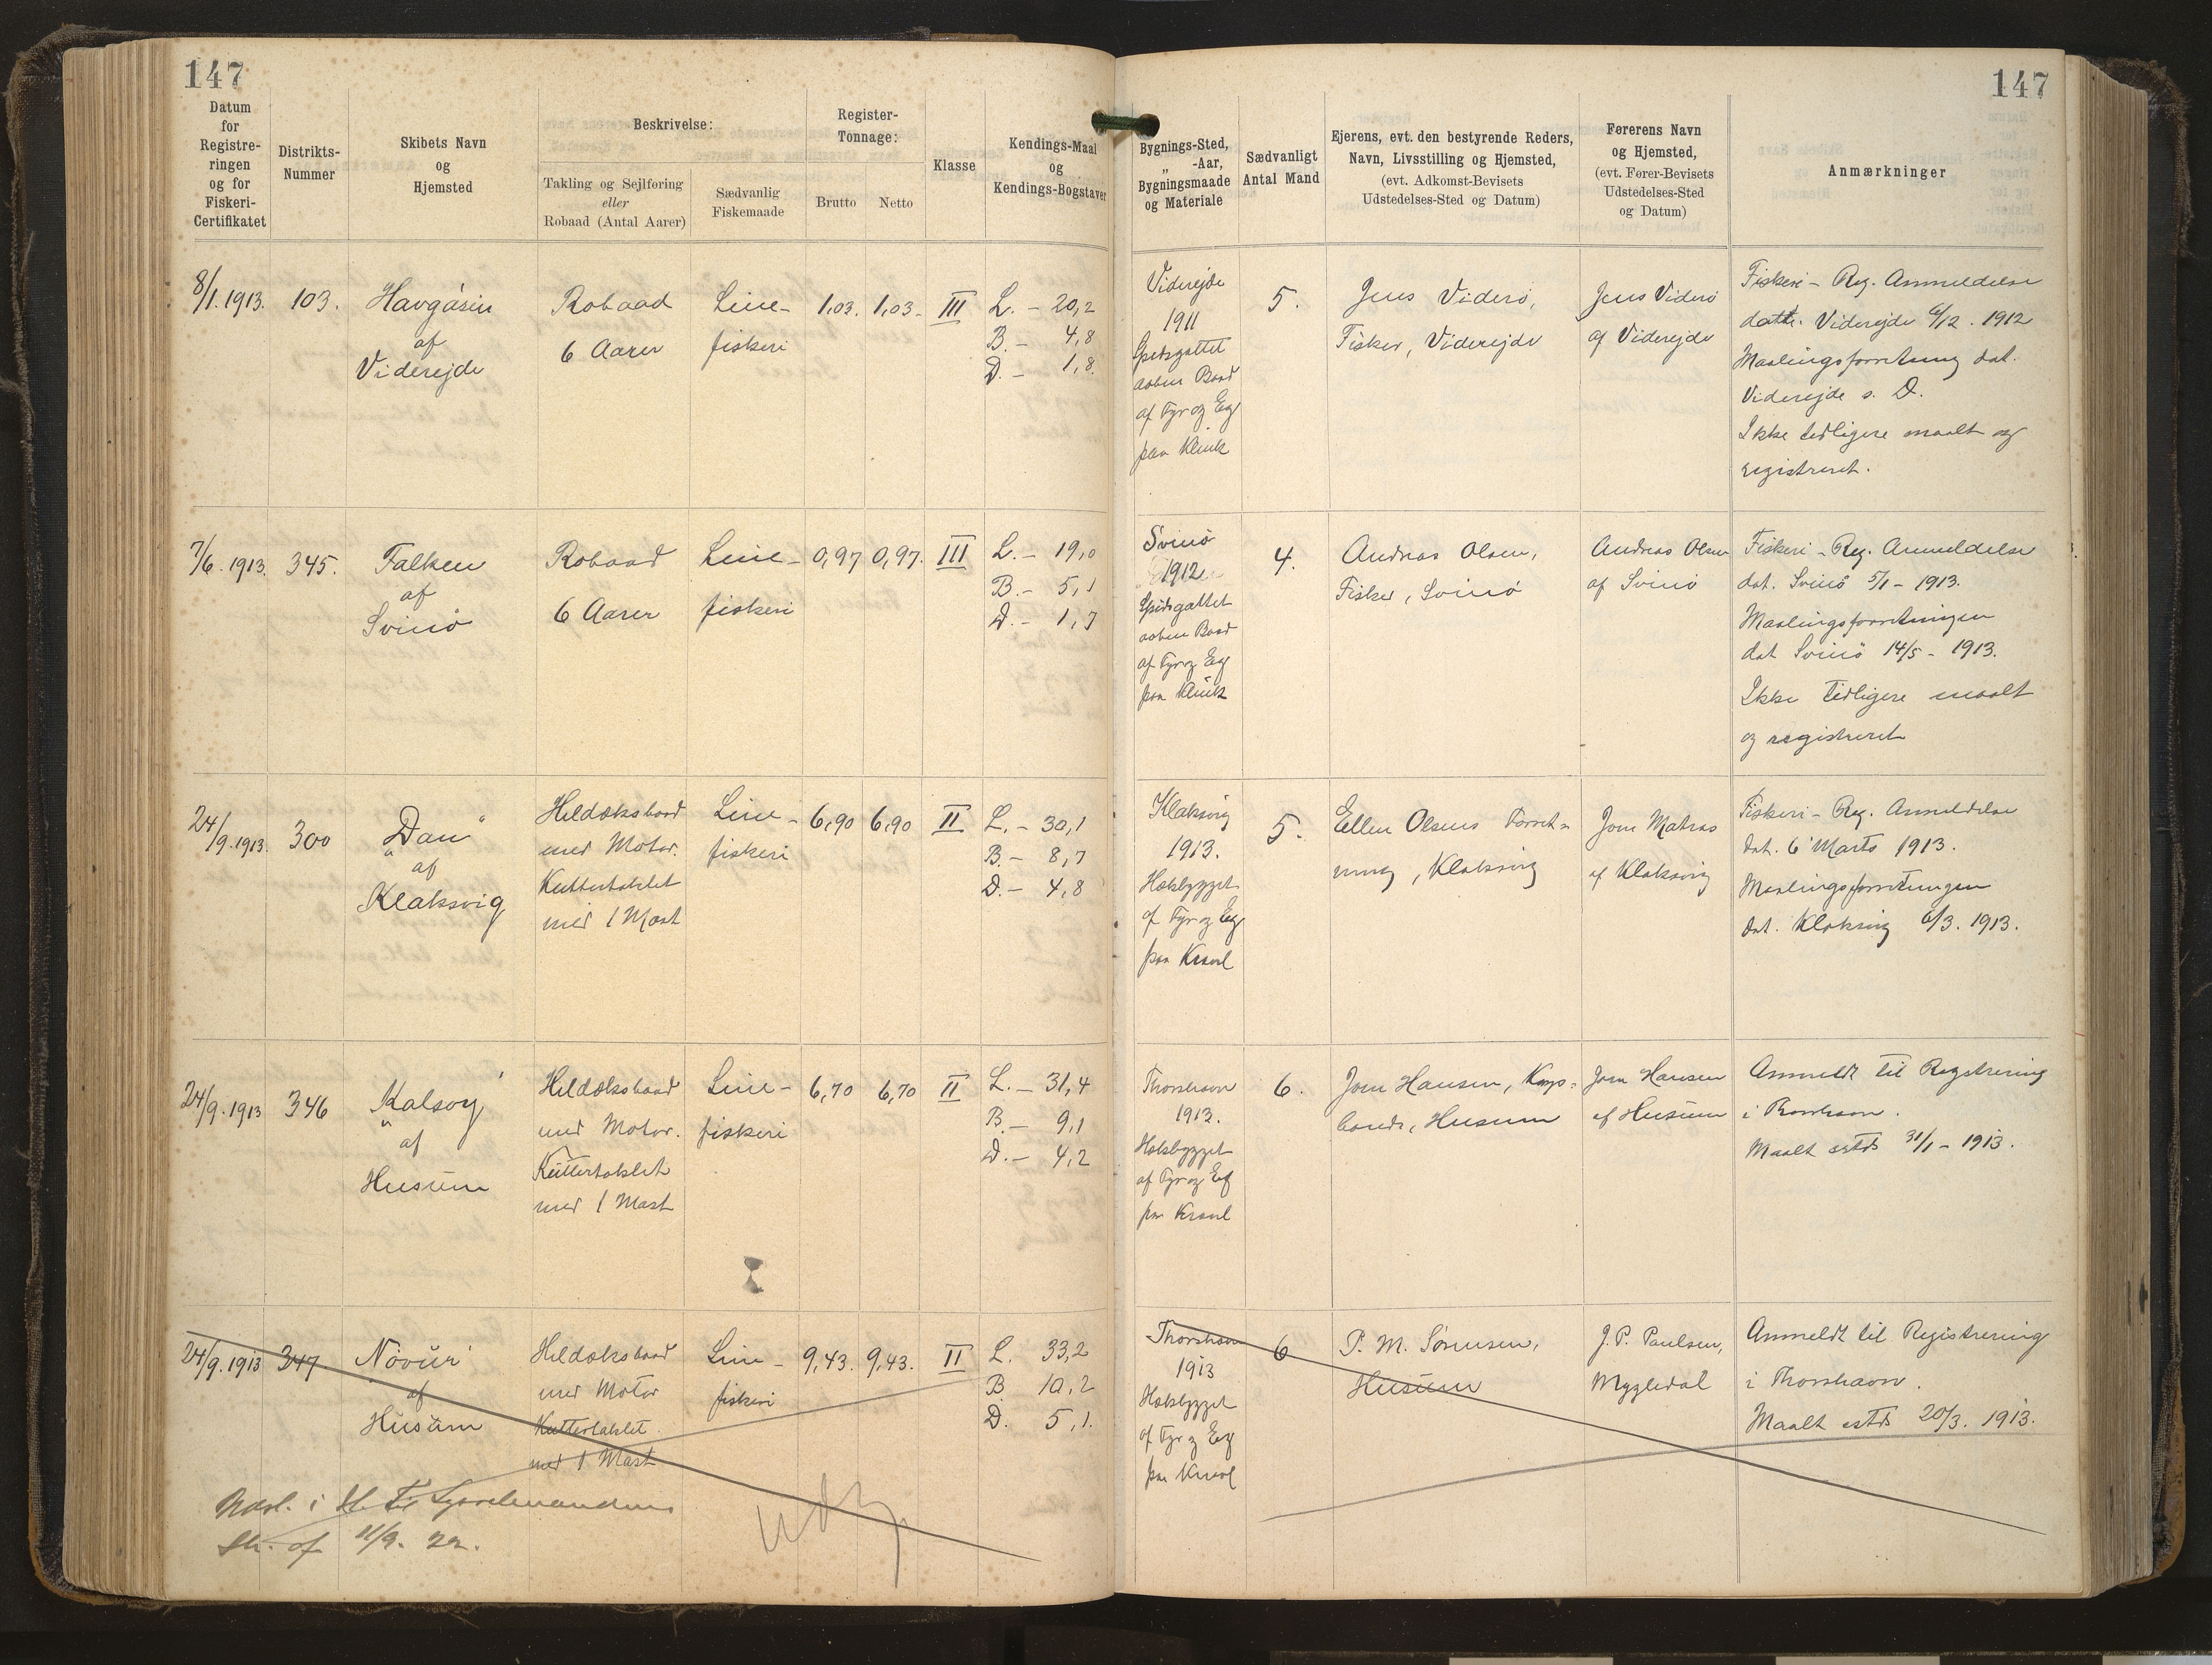 147
147
Datum
for
Registre-
ringen
og for
Fiskeri-
Certifikatet
Distrikts-
Nummer
Skibets Navn
og
Hjemsted
Beskrivelse:
Takling og Sejlføring
eller
Robaad (Antal Aarer)
Sædvanlig
Fiskemaade
Register-
Tonnage:
Brutto
Netto
Klasse
Kendings-Maal
og
Kendings-Bogstaver
Bygnings-Sted,
„ -Aar,
Bygningsmaade
og Materiale
Sædvanligt
Antal Mand
Ejerens, evt. den bestyrende Reders,
Navn, Livsstilling og Hjemsted,
(evt. Adkomst-Bevisets
Udstedelses-Sted og Datum)
Førerens Navn
og Hjemsted,
(evt. Fører-Bevisets
Udstedelses-Sted
og Datum)
Anmærkninger
8/1. 1913.
103.
Havgásin
af
Viderejde
Robaad
6 Aarer
Line-
fiskeri
1,03.
1,03.
III
L. - 20,2
B. - 4,8
D. - 1,8
Viderejde
1911
Spidsgattet
aaben Baad
af Fyr og Eg
paa Klink
5.
Jens Viderö,
Fisker, Viderejde
Jens Viderö
af Viderejde
Fiskeri-Reg. Anmeldelse
datt. Viderejde 6/12. 1912
Maalingsforretning dat.
Viderejde s. D.
Ikke tidligere maalt og
registreret.
7/6. 1913.
345.
Falken
af
Svinö
Robaad
6 Aarer
Line-
fiskeri
0,97
0,97.
III
L. - 19,0
B. - 5,1
D. - 1,7
Svinö
1912
Spidsgattet
aaben Baad
af Fyr og Eg
paa Klink
4.
Andreas Olsen,
Fisker, Svinö
Andreas Olsen
af Svinö
Fiskeri-Reg. Anmeldelse
dat. Svinö 5/1 - 1913.
Maalingsforretningen
dat Svinö 14/5 - 1913.
Ikke tidligere maalt
og registreret
24/9. 1913.
300
„Dan“
af
Klaksvig
Heldæksbaad
med Motor.
Kuttertaklet
med 1 Mast
Line-
fiskeri
6,90
6,90
II
L. - 30,1
B. - 8,7
D. - 4,8
Klaksvig
1913.
Hækbygget
af Fyr og Eg
paa Kravl
5.
Ellen Olsens Forret-
ning, Klaksvig
Jom Matras
af Klaksvig
Fiskeri-Reg. Anmeldelse
dat. 6 Marts 1913.
Maalingsforretningen
dat. Klaksvig 6/3. 1913.
24/9. 1913
346
„Kalsoy“
af
Husum
Heldæksbaad
med Motor.
Kuttertaklet
med 1 Mast
Line-
fiskeri
6,70
6,70
II
L. - 31,4
B. - 9,1
D. - 4,2
Thorshavn
1913.
Hækbygget
af Fyr og Eg
paa Kravl
6.
Jom Hansen, Kgs-
bonde, Husum
Jom Hansen
af Husum
Anmeldt til Registrering
i Thorshavn.
Maalt sstds 31/1 - 1913.
24/9. 1913
347.
Nòvur
af
Husum
Heldæksbaad
med Motor
Kuttertaklet
med 1 Mast
Line-
fiskeri
9,43.
9,43.
II
L. 33,2
B. 10,2
D. 5,1.
Thorshavn
1913
Hækbygget
af Fyr og Eg
paa Kravl
6
P. M. Sörensen,
Husum
J. P. Paulsen,
Mygledal
Anmeldt til Registrering
i Thorshavn.
Maalt sstds 20/3. 1913.
i Sysselmandens
Skr. af 11/9. 22.
udg